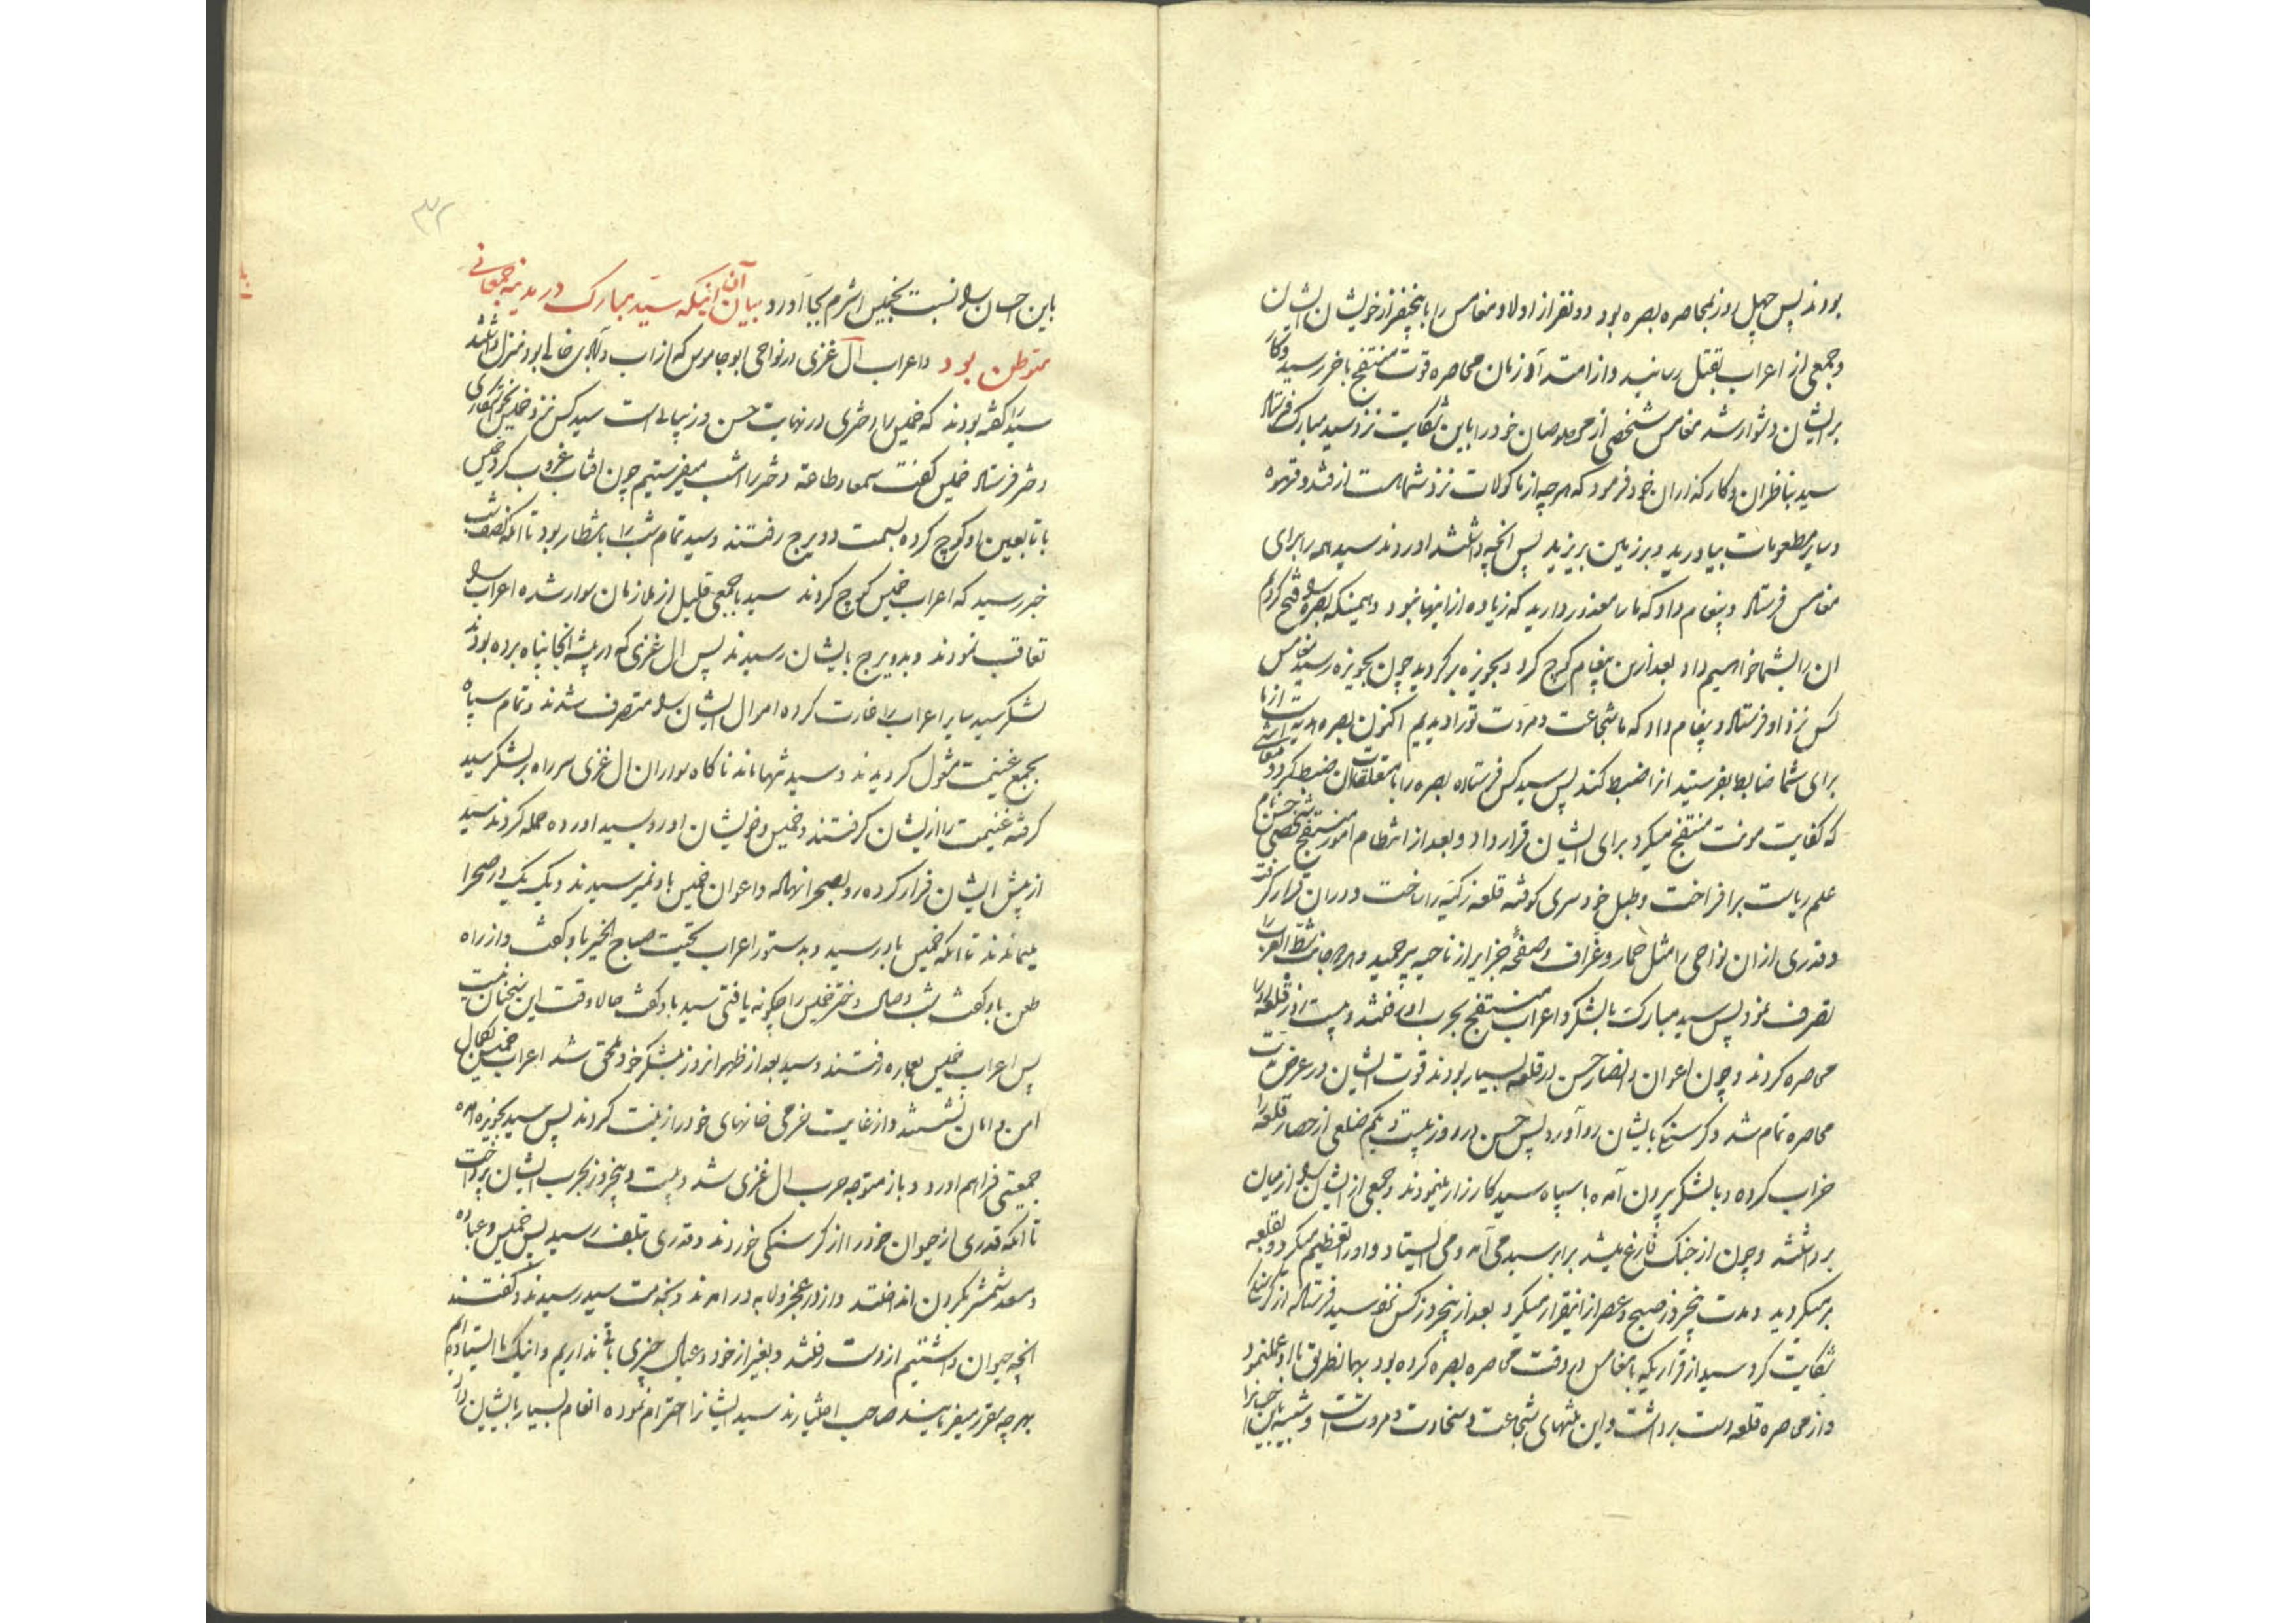 بودند پس چهل روز بمحاصره بصره بود دو نفر از اولاد مغامس را با پنجنفر از خویشان ایشان
و جمعی از اعراب بقتل رسانید و از امتداد زمان محاصره قوت منتفج باخر رسید و کار
بر ایشان دشوار شد مغامس شخصی از مخصوصان خود را باین شکایت نزد سید مبارک فرستاد
سید بناظران و کارگذاران خود فرمود که هر چه از ماکولات نزد شماهست از قند و قهوه
و سایر مطعومات بیاورید و بر زمین بریزید پس انچه داشتند اوردند سید همه را برای
مغامس فرستاد و پیغام داد که ما را معذور دارید که زیاده از اینها نبود و همینکه بصره را فتح کردیم
ان را بشما خواهیم داد بعد ازین پیغام کوچ کرد و بحویزه برگردید چون بحویزه رسید مغامس
کس نزد او فرستاد و پیغام داد که ما شجاعت و مروت تو را دیدیم اکنون بصره هدیه ایست از ما
برای شما ضابط بفرستید انرا ضبط کند پس سید کس فرستاده بصره را با متعلقات ان ضبط کرد و معاشی
که کفایت مونت منتفج میکرد برای ایشان قرار داد و بعد از انتظام امور منتفج شخصی حسن نام
علم ریاست برافراخت و طبل خودسری کوفته قلعه زکیه را ساخت و در ان قرار گرفت
و قدری از ان نواحی را مثل حمار و غراف و صفحه جزایر از ناحیه پرحمید و هر دو جانب شط العرب را
تصرف نمود پس سید مبارک با لشکر و اعراب منتفج بحرب او رفتند و بیست روز قلعه را
محاصره کردند و چون اعوان و انصار حسن در قلعه بسیار بودند قوت ایشان در عرض مدت
محاصره تمام شد و گرسنگی بایشان رو آورد پس حسن در روز بیست و یکم ضلعی از حصار قلعه را
خراب کرده و با لشکر بیرون آمده با سپاه سید کارزار مینمودند و جمعی از ایشان را از میان
برداشتند و چون از جنگ فارغ میشد برابر سید می آمد و می ایستاد و او را تعظیم میکرد و بقلعه
بر میگردید و مدت پنجروز صبح و عصر از اینقرار میکرد بعد از پنجروز کس نزد سید فرستاد از گرسنگی
شکایت کرد سید از قراریکه با مغامس در وقت محاصره بصره کرده بود بهمانطریق با او عمل نمود
و از محاصره قلعه دست برداشت و این منتهای شجاعت و سخاوت و مروت است و شبیه باین
باین احسان را نسبت بخمیس اشرم بجا آورد بیان آن اینکه سید مبارک در مدینه جمعانی
متوطن بود و اعراب آل غزی در نواحی ابو جاموس که از اب و آبادی خالی بود منزل داشتند
سید را گفته بودند که خمیس را دختری در نهایت حسن و زیبائی است سید کس نزد خمیس بخواستگاری
دختر فرستاد خمیس گفت سمعا و طاعة دختر را امشب میفرستیم چون افتاب غروب کرد خمیس
با تابعین او کوچ کرده بسمت دویرج رفتند و سید تمام شب را بانتظار بود تا انکه نصف شب
خبر رسید که اعراب خمیس کوچ کردند سید با جمعی قلیل از ملازمان سوار شده اعراب را
تعاقب نمودند و بدویرج بایشان رسیدند پس ال غزی که در بیشه انجا پناه برده بودند
لشکر سید سایر اعراب را غارت کرده اموال ایشان را متصرف شدند و تمام سپاه
بجمع غنیمت مشغول گردیدند و سید تنها ماند ناگاه سواران ال غزی سر راه بر لشکر سید
گرفته غنیمت را از ایشان گرفتند و خمیس و خویشان او رو بسید اورده حمله کردند سید
از پیش ایشان فرار کرده رو بصحرا نهاد و اعوان خمیس باو نمیرسیدند و یک یک در صحرا
میماندند تا انکه خمیس باو رسید و بدستور اعراب تحیت صباح الخیر باو گفت و از راه
طعن باو گفت شب وصال دختر خمیس را چگونه یافتی سید باو گفت حالا وقت این سخنان نیست
پس اعراب خمیس بعماره رفتند و سید بعد از ظهر انروز بلشکر خود ملحق شد اعراب خمیس بکمال
امن و امان نشستند و از غایت خرمی خانهای خود را زینت کردند پس سید بحویزه امده
جمعیتی فراهم اورد و باز متوجه حرب ال غزی شد و بیست و پنجروز بحرب ایشان پرداخت
تا انکه قدری از حیوان خود را از گرسنگی خوردند و قدری تلف رسید پس خمیس و عباده
و سعد شمشیر بگردن انداختند و از در عجز و لابه در امدند و بخدمت سید رسیدند و گفتند
انچه حیوان داشتیم از دست رفتند و بغیر از خود و عیال چیزی باقی نداریم و اینک ما ایستاده ایم
بهر چه مقرر میفرمایند صاحب اختیارند سید ایشانرا احترام نموده انعام بسیار بایشان داد